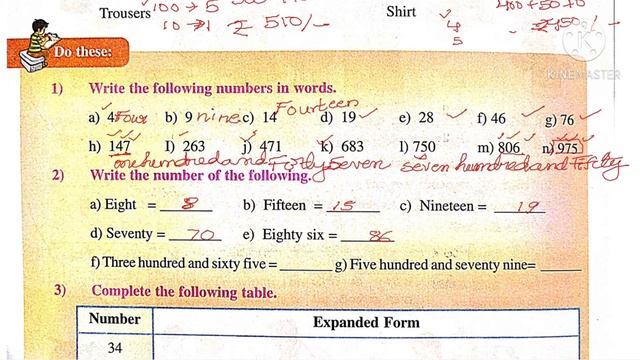 Trousers 100 → 5 Shirt 400+50+0
10 → 1 = 510/- 4 5 = 450/-
KINEMASTER
Do these:
1) Write the following numbers in words.
a) 4 Four b) 9 nine c) 14 Fourteen d) 19 e) 28 f) 46 g) 76
h) 147 I) 263 j) 471 k) 683 l) 750 m) 806 n) 975
one hundred and Forty Seven seven hundred and Fifty
2) Write the number of the following.
a) Eight = 8 b) Fifteen = 15 c) Nineteen = 19
d) Seventy = 70 e) Eighty six = 86
f) Three hundred and sixty five = ______ g) Five hundred and seventy nine= ______
3) Complete the following table.
Number Expanded Form
34